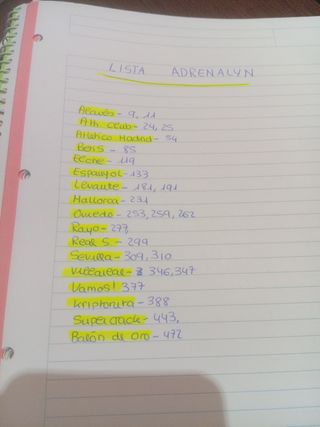 LISTA ADRENALYN
Alavés - 9, 11
Ath. Club - 24, 25
Atlético Madrid - 54
Betis - 85
Elche - 119
Espanyol - 133
Levante - 181, 191
Mallorca - 231
Oviedo - 253, 259, 262
Rayo - 277
Real S - 299
Sevilla - 309, 310
Villareal - 346, 347
Vamos! 377
Kriptonita - 388
Supercrack - 443,
Balón de oro - 472